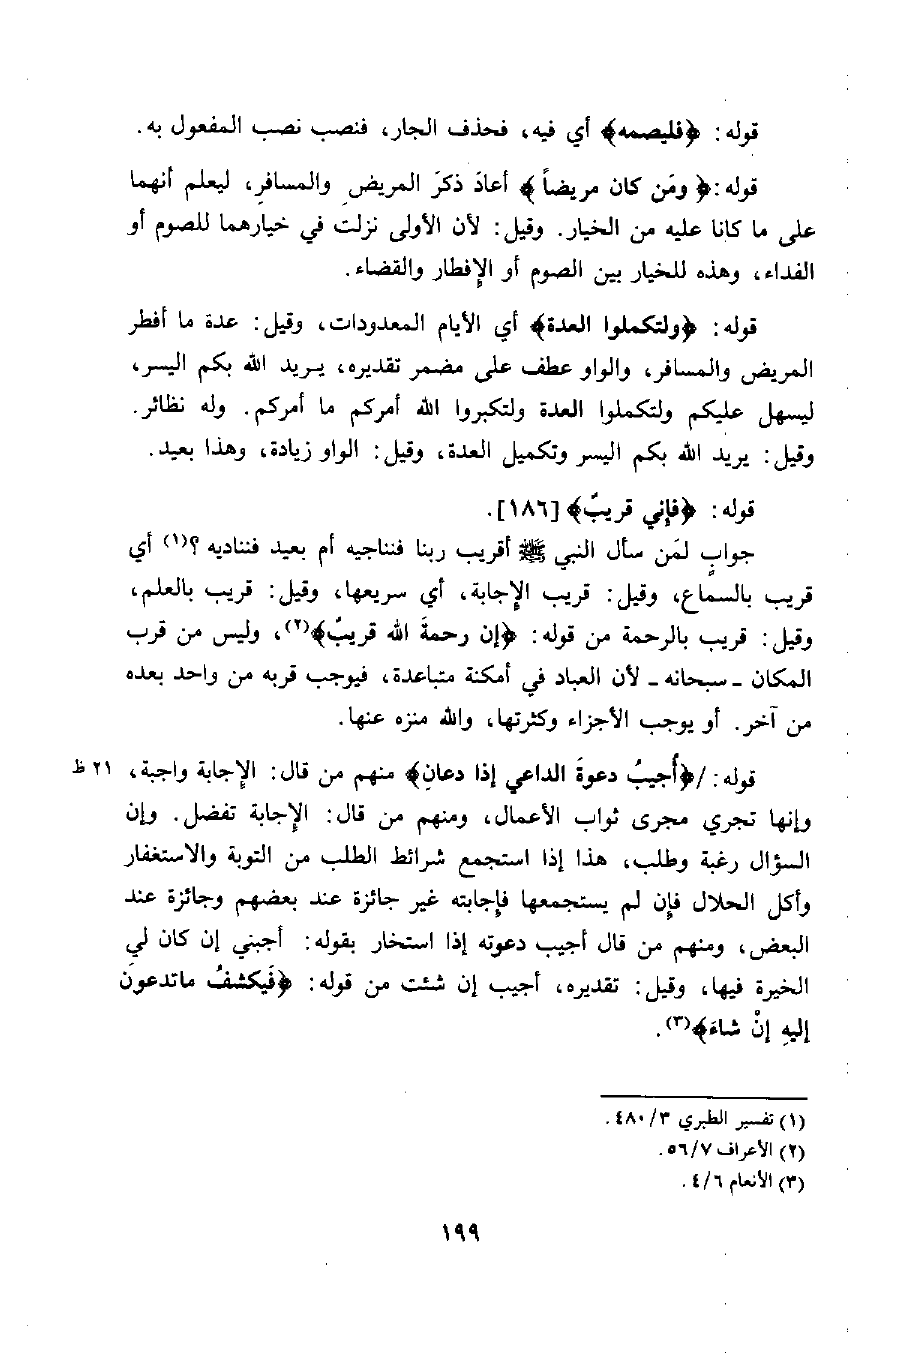 قوله: ﴿فليصمه﴾ أي فيه، فحذف الجار، فنصب نصب المفعول به.
قوله:﴿ ومَن كان مريضاً ﴾ أعادَ ذكرَ المريضِ والمسافرِ، ليعلم أنهما
على ما كانا عليه من الخيار. وقيل: لأن الأولى نزلت في خيارهما للصوم أو
الفداء، وهذه للخيار بين الصوم أو الإفطار والقضاء.
قوله: ﴿ولتكملوا العدة﴾ أي الأيام المعدودات، وقيل: عدة ما أفطر
المريض والمسافر، والواو عطف على مضمر تقديره، يريد الله بكم اليسر،
ليسهل عليكم ولتكملوا العدة ولتكبروا الله أمركم ما أمركم. وله نظائر.
وقيل: يريد الله بكم اليسر وتكميل العدة، وقيل: الواو زيادة، وهذا بعيد.
قوله: ﴿فإني قريبٌ﴾ [١٨٦].
جوابٍ لمَن سأل النبي ﷺ أقريب ربنا فنناجيه أم بعيد فنناديه ؟(١) أي
قريب بالسماع، وقيل: قريب الإجابة، أي سريعها، وقيل: قريب بالعلم،
وقيل: قريب بالرحمة من قوله: ﴿إن رحمةَ الله قريبٌ﴾(٢)، وليس من قرب
المكان ـ سبحانه ـ لأن العباد في أمكنة متباعدة، فيوجب قربه من واحد بعده
من آخر. أو يوجب الأجزاء وكثرتها، والله منزه عنها.
قوله: /﴿أُجيبُ دعوةَ الداعي إذا دعانِ﴾ منهم من قال: الإجابة واجبة، ٢١ ظ
وإنها تجري مجرى ثواب الأعمال، ومنهم من قال: الإجابة تفضل. وإن
السؤال رغبة وطلب، هذا إذا استجمع شرائط الطلب من التوبة والاستغفار
وأكل الحلال فإن لم يستجمعها فإجابته غير جائزة عند بعضهم وجائزة عند
البعض، ومنهم من قال أجيب دعوته إذا استخار بقوله: أجبني إن كان لي
الخيرة فيها، وقيل: تقديره، أجيب إن شئت من قوله: ﴿فَيكشفُ ماتدعونَ
إليهِ إنْ شاءَ﴾(٣).
(١) تفسير الطبري ٤٨٠/٣.
(٢) الأعراف ٥٦/٧.
(٣) الأنعام ٤/٦.
١٩٩